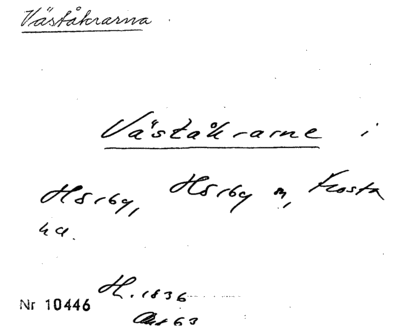 Väståkrarna
Väståkrarne i
Hörby, Hörby m, Frosta
hd.
Nr 10446 H. 1836
Akt 63